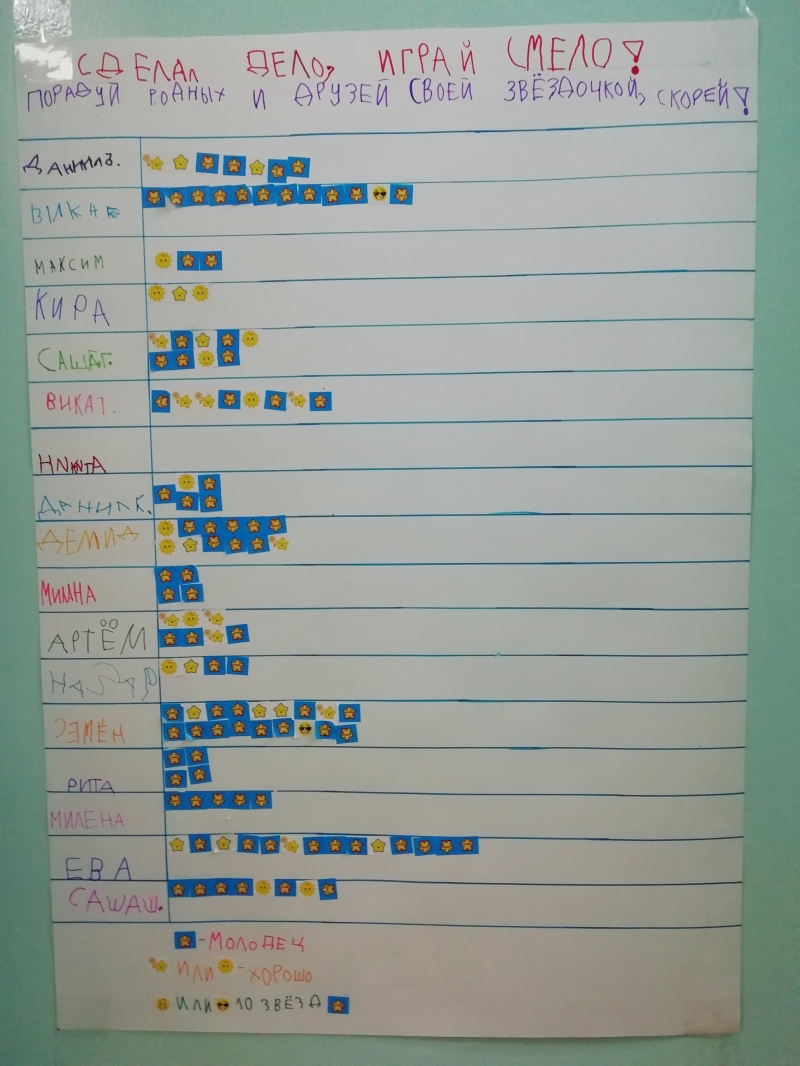 СДЕЛАЛ ДЕЛО, ИГРАЙ СМЕЛО!
ПОРАДУЙ РОДНЫХ И ДРУЗЕЙ СВОЕЙ ЗВЁЗДОЧКОЙ, СКОРЕЙ!
МАКСИМ
КИРА
САШАГ.
ВИКАТ.
НИКИТА
ДАНИЛК.
ДЕМИД
АРТЁМ
НАЗАР
СЕМЁН
РИТА
МИЛЕНА
ЕВА
САШАШ.
-МОЛОДЕЦ
ИЛИ -ХОРОШО
ИЛИ 10 ЗВЁЗД